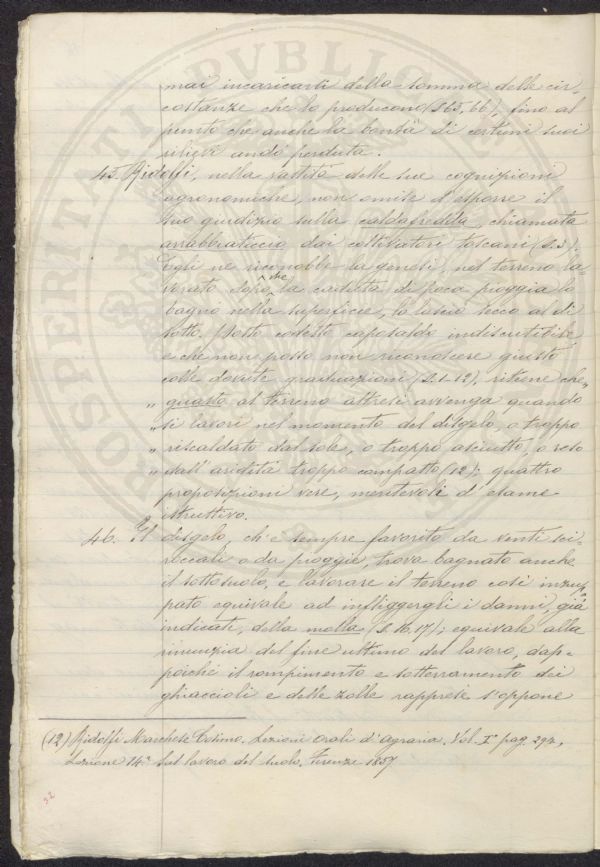 PROSPERITATI PVBLICAE
mai incaricarsi della somma delle cir-
costanze che lo producono (§ 65, 66), fino al
punto che anche la bontà di certuni suoi
andò perduta.
45. Ridolfi, nella vastità delle sue cognizioni
agronomiche, non omise d'esporre il
suo giudizio sulla caldafredda, chiamata
arrabbiaticcio dai coltivatori toscani (§.3).
Egli ne riconobbe la genesi, nel terreno la-
vorato dopo che la caduta di poca pioggia lo
bagnò nella superficie, lo lasciò secco al di
sotto. Sotto codesto caposaldo indiscutibile
e che non posso non riconoscere giusto
colle dovute graduazioni (§.1-12), ritiene che
„ guasto al terreno altresì avvenga quando
„ si lavori nel momento del disgelo, o troppo
„ riscaldato dal sole, o troppo asciutto, o reso
„ dall'aridità troppo compatto (12); quattro
proposizioni vere, meritevoli d'esame
istruttivo.
46. Il disgelo, ch'è sempre favorito da venti sci-
roccali o da pioggie, trova bagnato anche
il sottosuolo, e lavorare il terreno così inzup-
pato equivale ad infliggergli i danni, già
indicati, della molla (§.16.17); equivale alla
rinunzia del fine ultimo del lavoro, dap-
poichè il rompimento e sotterramento dei
ghiaccioli e delle zolle rapprese s'oppone
(12) Ridolfi Marchese Cosimo. Lezioni orali d'agraria. Vol. I° pag. 292,
Lezione 14ª Sul lavoro del suolo. Firenze 1857
32